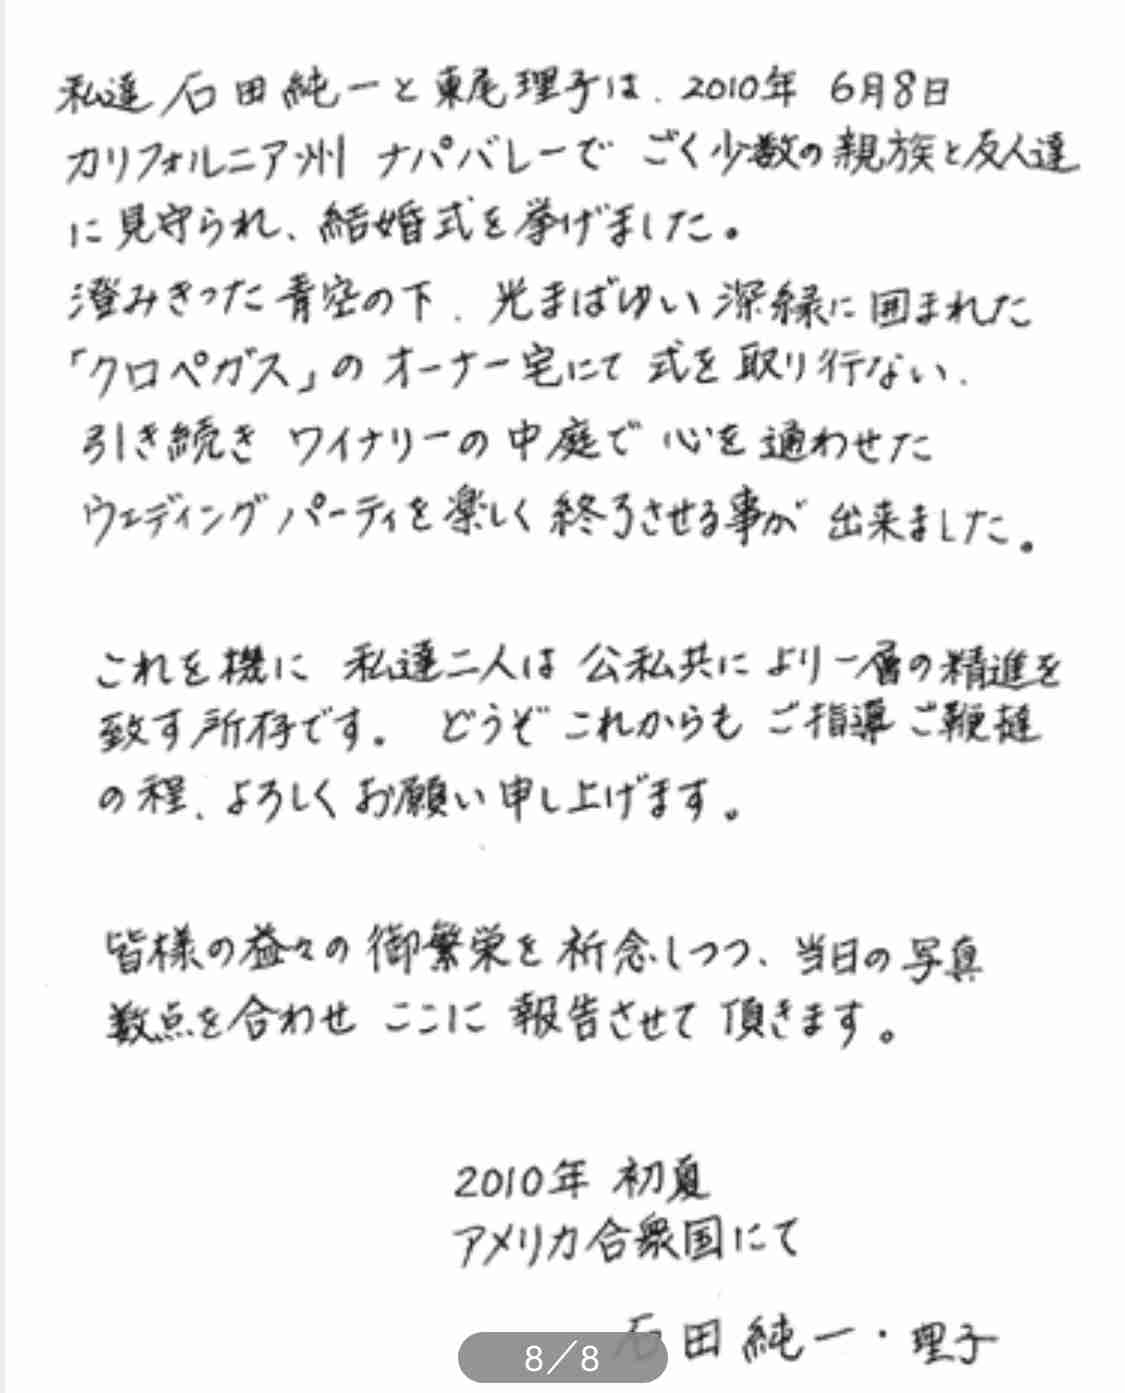 私達 石田純一と東尾理子は、2010年 6月8日
カリフォルニア州 ナパバレーで ごく少数の親族と友人達
に見守られ、結婚式を挙げました。
澄みきった青空の下、光まばゆい深緑に囲まれた
「クロペガス」のオーナー宅にて 式を取り行ない、
引き続き ワイナリーの中庭で 心を通わせた
ウェディングパーティを楽しく終了させる事が 出来ました。
これを機に 私達二人は 公私共に より一層の精進を
致す所存です。 どうぞこれからも ご指導ご鞭撻
の程、よろしくお願い申し上げます。
皆様の益々の御繁栄を祈念しつつ、当日の写真
数点を合わせ ここに 報告させて頂きます。
2010年 初夏
アメリカ合衆国にて
石田純一・理子
8/8